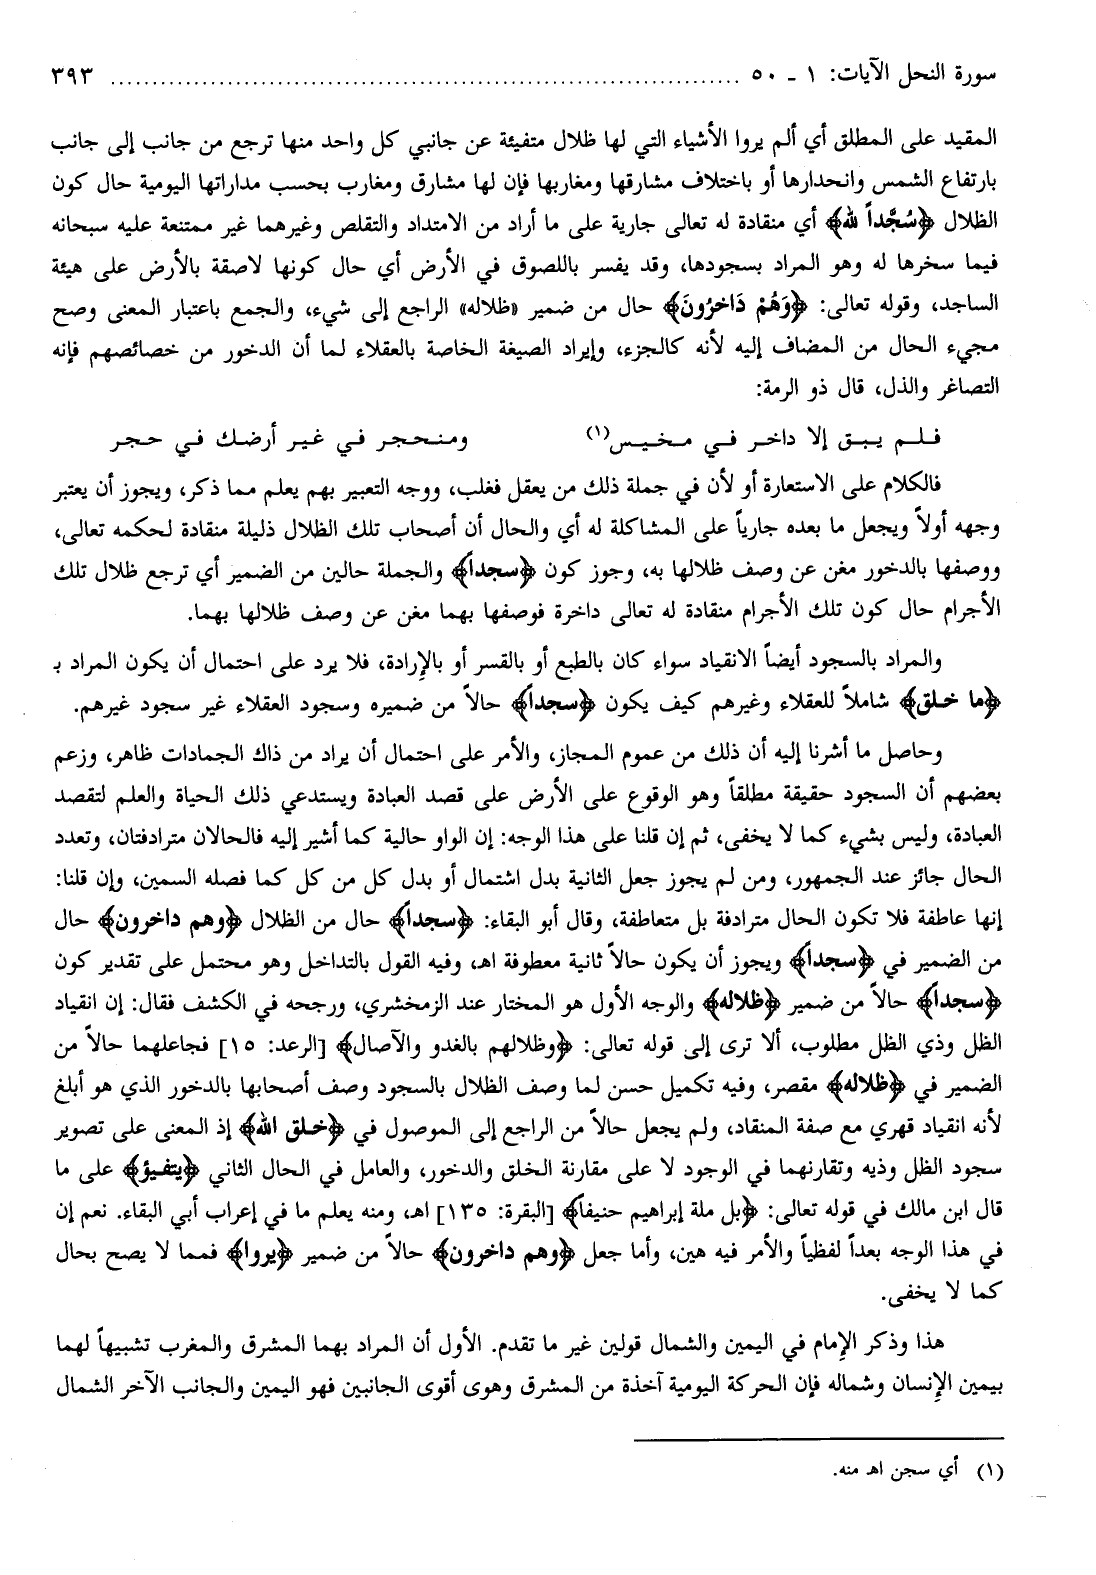 سورة النحل الآيات: ١ ـ ٥٠ ........................................................................ ٣٩٣
المقيد على المطلق أي ألم يروا الأشياء التي لها ظلال متفيئة عن جانبي كل واحد منها ترجع من جانب إلى جانب
بارتفاع الشمس وانحدارها أو باختلاف مشارقها ومغاربها فإن لها مشارق ومغارب بحسب مداراتها اليومية حال كون
الظلال ﴿سُجَّداً لله﴾ أي منقادة له تعالى جارية على ما أراد من الامتداد والتقلص وغيرهما غير ممتنعة عليه سبحانه
فيما سخرها له وهو المراد بسجودها، وقد يفسر باللصوق في الأرض أي حال كونها لاصقة بالأرض على هيئة
الساجد، وقوله تعالى: ﴿وَهُمْ دَاخرُونَ﴾ حال من ضمير «ظلاله» الراجع إلى شيء، والجمع باعتبار المعنى وصح
مجيء الحال من المضاف إليه لأنه كالجزء، وإيراد الصيغة الخاصة بالعقلاء لما أن الدخور من خصائصهم فإنه
التصاغر والذل، قال ذو الرمة:
فلم يبق إلا داخر في مخيس(١) ومنحجر في غير أرضك في حجر
فالكلام على الاستعارة أو لأن في جملة ذلك من يعقل فغلب، ووجه التعبير بهم يعلم مما ذكر، ويجوز أن يعتبر
وجهه أولاً ويجعل ما بعده جارياً على المشاكلة له أي والحال أن أصحاب تلك الظلال ذليلة منقادة لحكمه تعالى،
ووصفها بالدخور مغن عن وصف ظلالها به، وجوز كون ﴿سجداً﴾ والجملة حالين من الضمير أي ترجع ظلال تلك
الأجرام حال كون تلك الأجرام منقادة له تعالى داخرة فوصفها بهما مغن عن وصف ظلالها بهما.
والمراد بالسجود أيضاً الانقياد سواء كان بالطبع أو بالقسر أو بالإِرادة، فلا يرد على احتمال أن يكون المراد بـ
﴿ما خلق﴾ شاملاً للعقلاء وغيرهم كيف يكون ﴿سجداً﴾ حالاً من ضميره وسجود العقلاء غير سجود غيرهم.
وحاصل ما أشرنا إليه أن ذلك من عموم المجاز، والأمر على احتمال أن يراد من ذاك الجمادات ظاهر، وزعم
بعضهم أن السجود حقيقة مطلقاً وهو الوقوع على الأرض على قصد العبادة ويستدعي ذلك الحياة والعلم لتقصد
العبادة، وليس بشيء كما لا يخفى، ثم إن قلنا على هذا الوجه: إن الواو حالية كما أشير إليه فالحالان مترادفتان، وتعدد
الحال جائز عند الجمهور، ومن لم يجوز جعل الثانية بدل اشتمال أو بدل كل من كل كما فصله السمين، وإن قلنا:
إنها عاطفة فلا تكون الحال مترادفة بل متعاطفة، وقال أبو البقاء: ﴿سجداً﴾ حال من الظلال ﴿وهم داخرون﴾ حال
من الضمير في ﴿سجداً﴾ ويجوز أن يكون حالاً ثانية معطوفة اهـ، وفيه القول بالتداخل وهو محتمل على تقدير كون
﴿سجداً﴾ حالاً من ضمير ﴿ظلاله﴾ والوجه الأول هو المختار عند الزمخشري، ورجحه في الكشف فقال: إن انقياد
الظل وذي الظل مطلوب، ألا ترى إلى قوله تعالى: ﴿وظلالهم بالغدو والآصال﴾ [الرعد: ١٥] فجاعلهما حالاً من
الضمير في ﴿ظلاله﴾ مقصر، وفيه تكميل حسن لما وصف الظلال بالسجود وصف أصحابها بالدخور الذي هو أبلغ
لأنه انقياد قهري مع صفة المنقاد، ولم يجعل حالاً من الراجع إلى الموصول في ﴿خلق الله﴾ إذ المعنى على تصوير
سجود الظل وذيه وتقارنهما في الوجود لا على مقارنة الخلق والدخور، والعامل في الحال الثاني ﴿يتفيؤ﴾ على ما
قال ابن مالك في قوله تعالى: ﴿بل ملة إبراهيم حنيفاً﴾ [البقرة: ١٣٥] اهـ، ومنه يعلم ما في إعراب أبي البقاء. نعم إن
في هذا الوجه بعداً لفظياً والأمر فيه هين، وأما جعل ﴿وهم داخرون﴾ حالاً من ضمير ﴿يروا﴾ فمما لا يصح بحال
كما لا يخفى.
هذا وذكر الإِمام في اليمين والشمال قولين غير ما تقدم. الأول أن المراد بهما المشرق والمغرب تشبيهاً لهما
بيمين الإِنسان وشماله فإن الحركة اليومية آخذة من المشرق وهوى أقوى الجانبين فهو اليمين والجانب الآخر الشمال
(١) أي سجن اهـ منه.